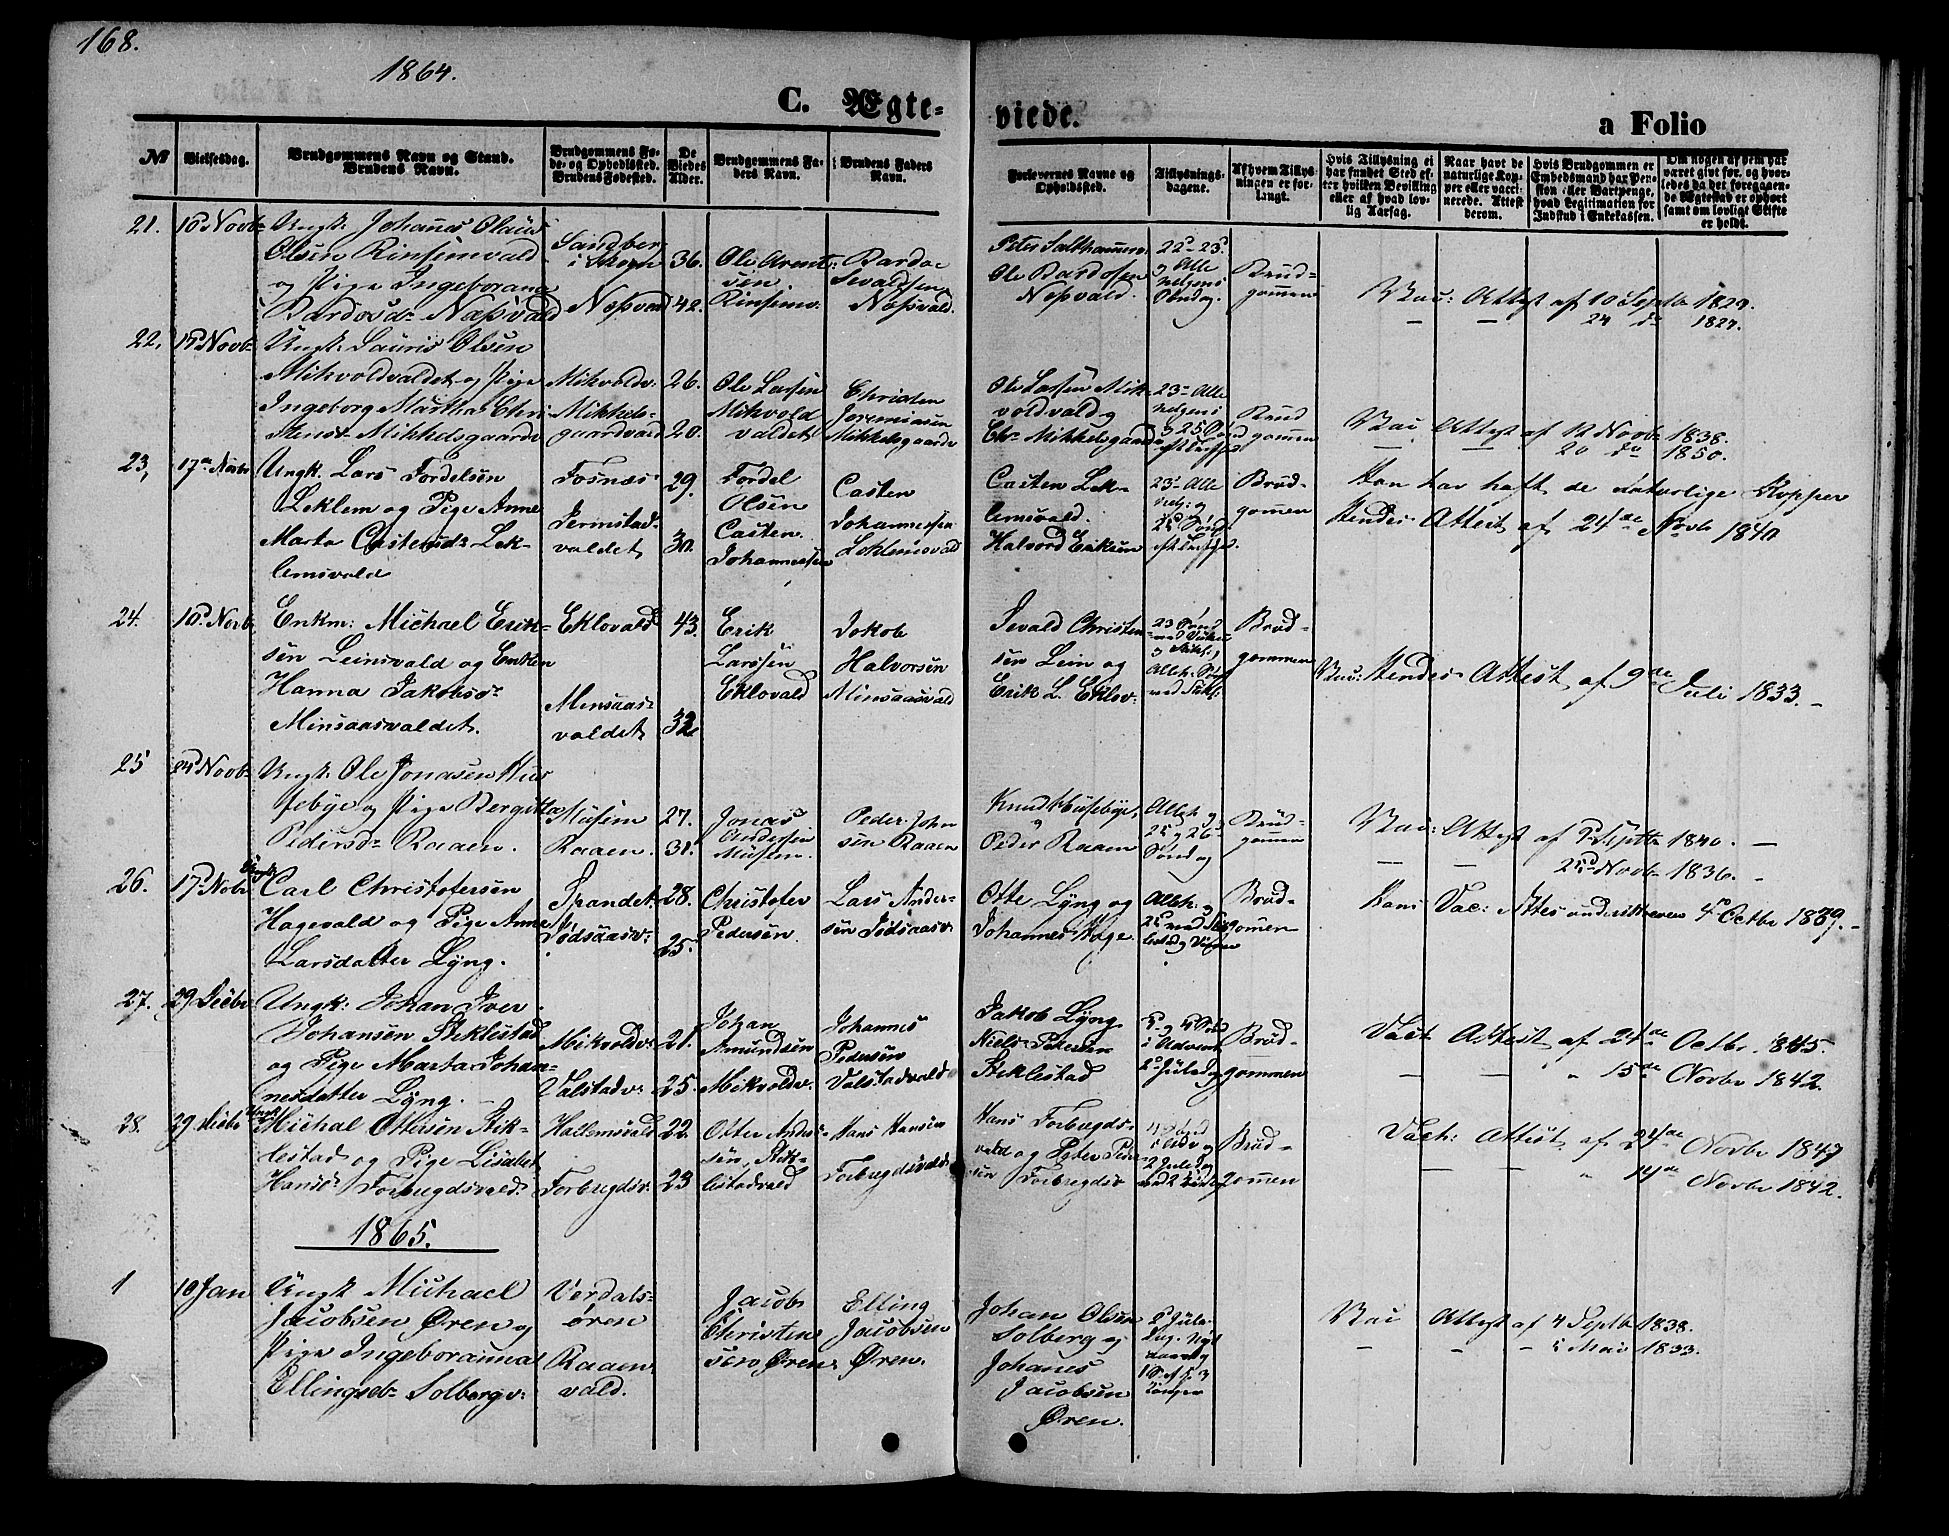 168.
1864.
C. Ægte-
viede.
a Folio
No
Vielsesdag.
Brudgommens Navn og Stand.
Brudens Navn.
Brudgommens Fø-
de- og Opholdssted.
Brudens Fødested.
De
Viedes
Alder.
Brudgommens Fa-
ders Navn.
Brudens Faders
Navn.
Forlovernes Navne og
Opholdssted.
Tillysnings-
dagene.
Af hvem Tillys-
ningen er for-
langt.
Hvis Tillysning ei
har fundet Sted ef-
ter hvilken Bevilling
eller af hvad lov-
lig Aarsag.
Naar havt de
naturlige Kop-
per eller vacci-
nerede. Attest
derom.
Hvis Brudgommen er
Embedsmand har Pen-
sion eller Vartpenge,
hvad Legitimation for
Indskud i Enkekassen.
Om nogen af dem har
været givt før, og hvor-
ledes da det foregaaen-
de Ægteskab er ophørt
samt om lovligt Skifte
er holdt.
21.
10 Novb
Ungk: Johanes Olaus
Olsen Rinsemvald
og Pige Ingeboranna
Bardosd: Næssvald
36.
42.
Ole Arent-
sen
Rinsemv.
Bardo
Sevaldsen
Næssvald.
Ole Bardosen
Næssvald.
22d 23d
g Alle
helgens
Søndag.
Brud-
gommen
Vac: Attest af 10 Septbr 1829.
— — 24 do 1827.
22,
Novb
Ungk: Lauris Olsen
Mikvoldvaldet og Pige
Ingeborg Martha Chri-
stensd. Mikkelsgaardv
Mikvoldv.
Mikkels-
gaardvald
26.
20.
Ole Larsen
Mikvold
valdet
Christen
Jeremiasen
Mikkelsgaardv
Ole Larsen Mik-
voldvald g
Chr. Mikkelsgaard
23d Alle
helgens
Brud
gommen
Vac Attest af 12 Novb 1838.
— — 20 do 1850.
23,
17de Novbr
Ungk. Lars Fordelsen
Leklem og Pige Anne
Marta Castensd: Lek-
lemsvald
Fosnæs
Jermstad-
valdet
29.
30.
Fordel
Olsen
Casten
Johannessen
Casten
Johannessen
Leklemsvald
Casten Lek-
lemsvald.
Halvord Eriksen
23d Alle
helg: g
Brud-
gomen
Han har haft de naturlige Kopper
Hendes Attest af 24de Novbr 1840
24.
10d Novb.
Enkm: Michael Erik-
sen Leinsvald og Enken
Hanna Jakobsd.
Minsaasvaldet.
Eklovald
Minsaas-
valdet
43.
32
Erik
Larssen
Eklovald
Jakob
Halvorsen
Minsaasvald
Sevald Christen-
sen Lein og
Erik L. Eklov.
Brud-
gommen
Vac: Hendes Attest af 9de Juli 1833. —
25
Novb
Ungk: Ole Jonasen Hus
febye og Pige Bergitta
Pedersd: Raaen.
Musem
Raaen.
27.
31.
Jonas
Andersen
Musem.
Peder John
sen Raaen
Knud Husebye,
g
Peder Raaen
Alleh: g
25d g 26d
Søndag
Brud-
gommen
Vac: Attest af Septbr 1840. —
— — 25d Novb 1836. -
26.
17d Novbr
Ungk
Carl Christofersen
Hagevald og Pige Anne
Larsdatter Lyng.
Spandet
Jødsaasv:
28.
25.
Christofer
Pedersen.
Lars Ander-
sen Jødsaasv.
Otte Lyng og
Johannes Hage
Brud-
gomen
Hans Vac: Attest 4d Octbr 1839. —
27.
29 Decbr
Ungk: Johan Iver
Johansen Stiklestad
og Pige Marta Johan-
nesdatter Lyng. —
Mikvoldv.
Valstadv:
21.
25.
Johan
Amundsen
Mikvoldv.
Johannes
Pedersen
Valstadvald
Jakob Lyng
Niels Petersen
Stiklestad
i Advent
2d Juledg
Brud-
gommen
Vact Attest af 24de Octbr. 1845.
— — " 15de Novbr 1842.
28.
29 Decbr
Ungk
Michal Ottesen Stik-
lestad og Pige Lisabet
Hansd. Forbregdsvald.
Hallemsvald
Forbregdsv.
22.
23
Otter Anders-
sen, Stik-
lestadvald
Hans Hansen
Forbregdsvald
Hans Forbregds-
vald og Peter Peder-
sen Forbregdsv
Brud-
gommen
Vach: Attest af 24de Novbr 1847
— — " 14de Novbr 1842.
1865.
1
10 Jan
Ungk Michael
Jacobsen Øren og
Pige Ingeboranna
Ellingsd: Solbergv:
Verdals-
øren
Raaen
vald.
Jacob
Christen
sen Øren.
Elling
Jacobsen
Øren.
Johan Olsen
Solberg og
Johanes
Jacobsen
Øren.
Vac Attest af 4 Septb 1838.
— — — i Mai 1833.